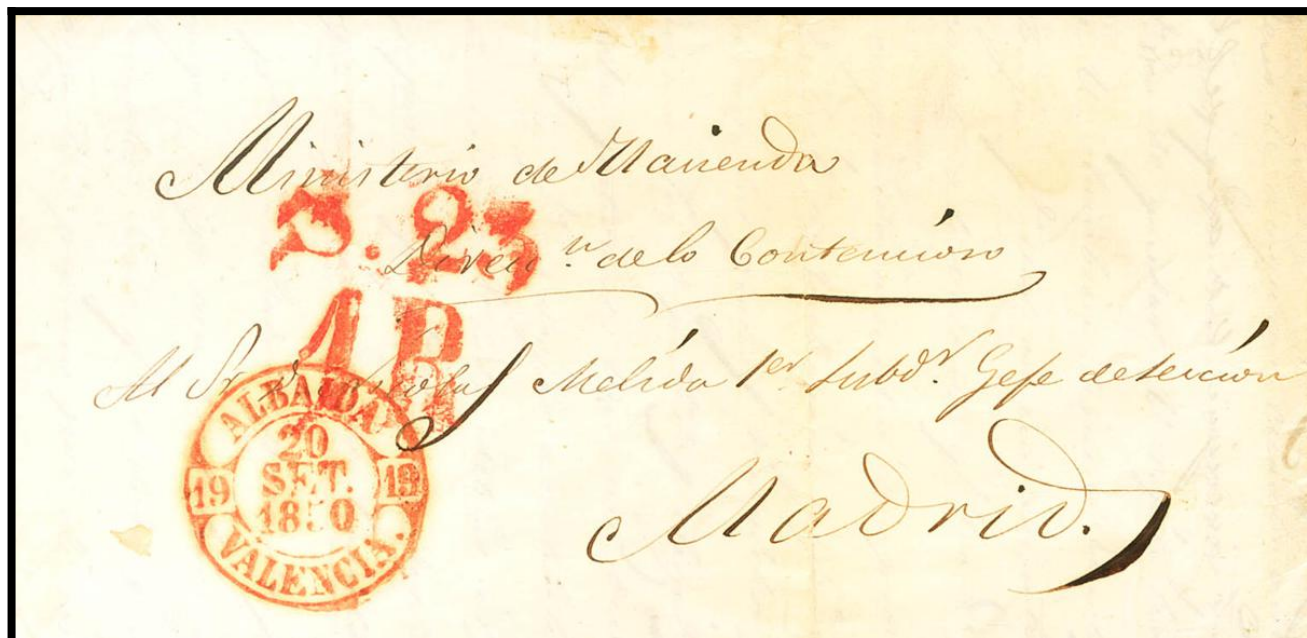 Ministerio de Hacienda
S. 23
Direcn. de lo Contencioso
1R
Al Sr. Dn. Nicolas Melida 1er Subdr. Gefe de seccion
ALBAIDA
20
SET.
1850
19 19
VALENCIA.
Madrid.